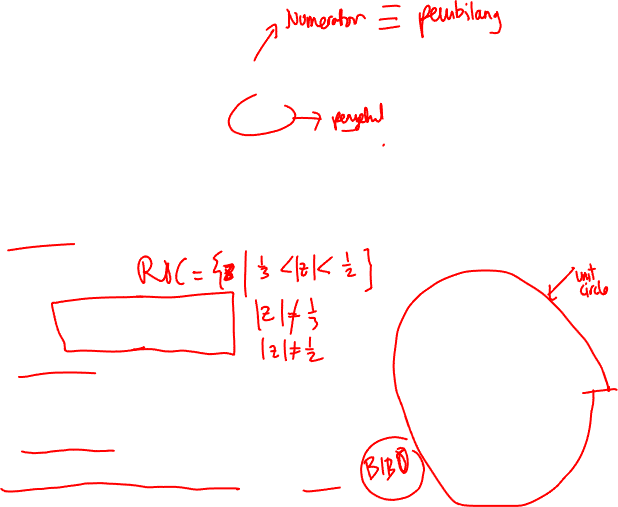 Numerator ≡ pembilang
ROC = {z | 1/3 < |z| < 1/2}
|z| ≠ 1/3
|z| ≠ 1/2
unit
circle
BIBO